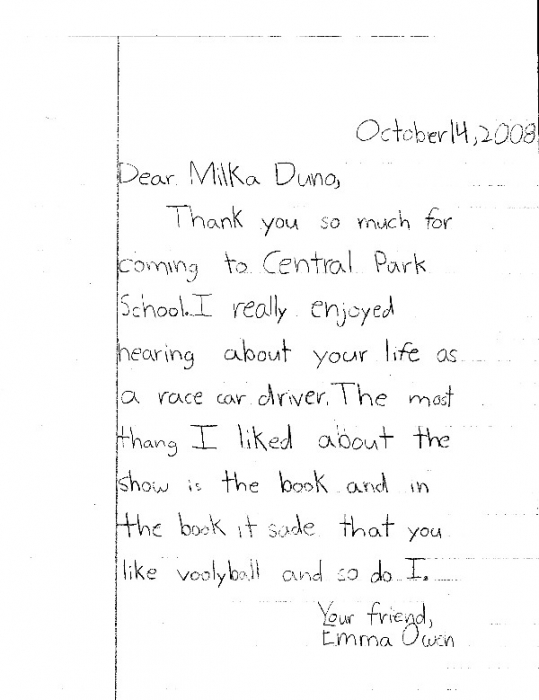 October 14, 2008
Dear Milka Duno,
Thank you so much for
coming to Central Park
School. I really enjoyed
hearing about your life as
a race car driver. The most
thang I liked about the
show is the book and in
the book it sade that you
like voolyball and so do I.
Your friend,
Emma Owen